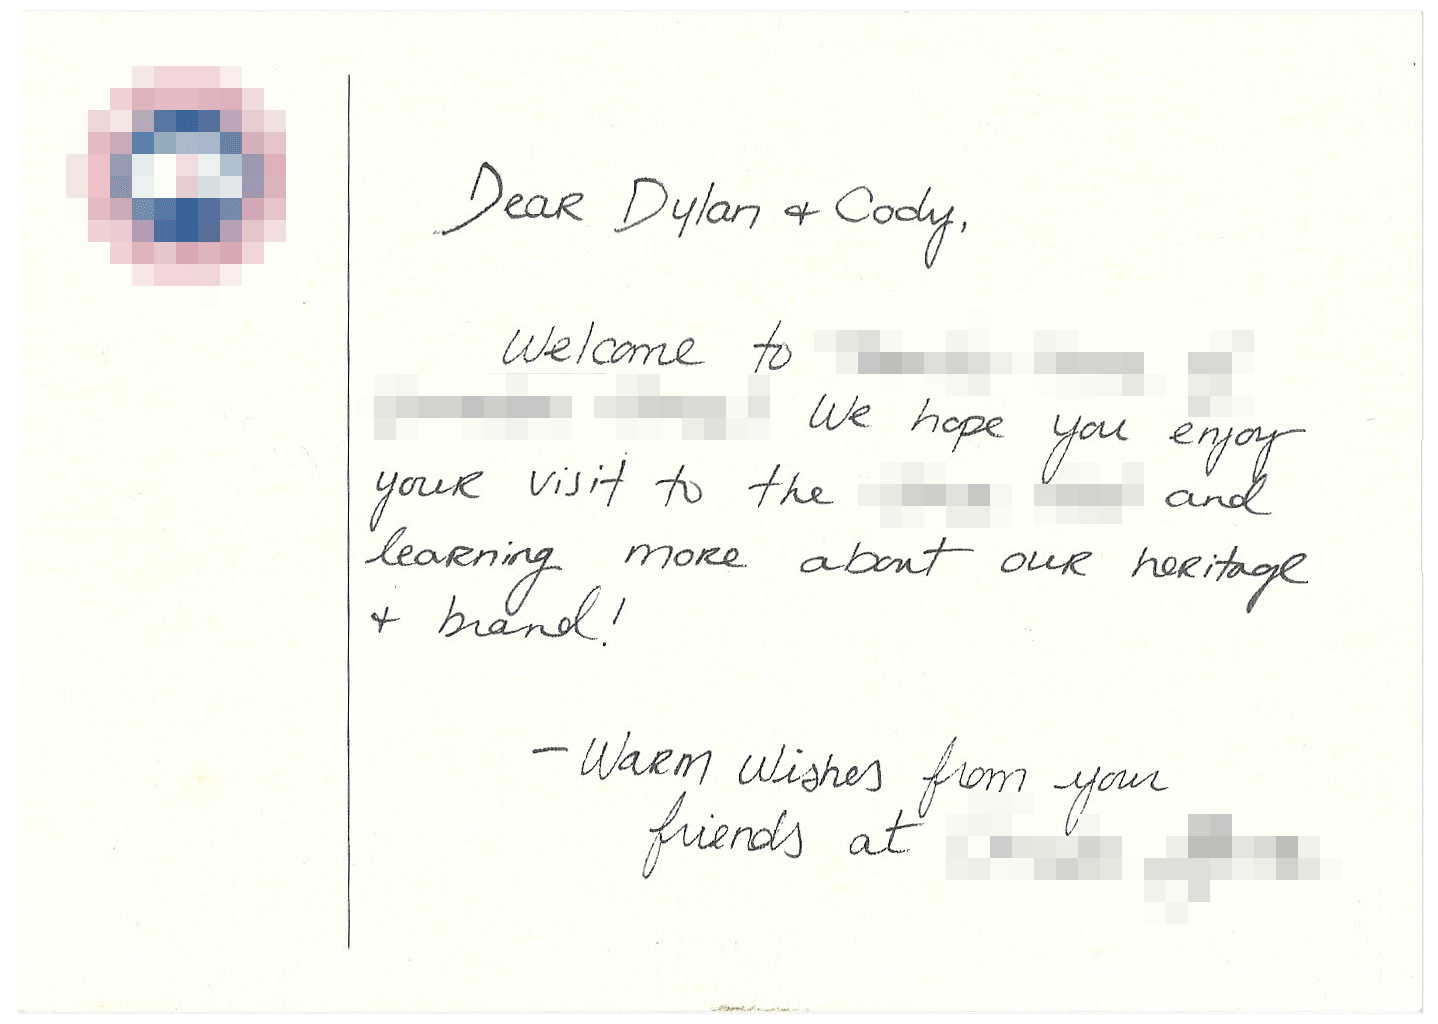 Dear Dylan & Cody,
Welcome to
We hope you enjoy
your visit to the and
learning more about our heritage
& brand!
- Warm Wishes from your
friends at